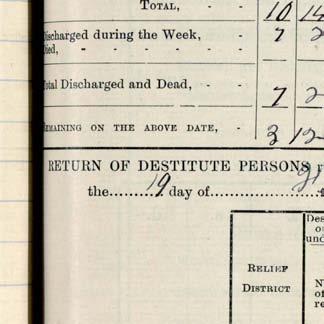 TOTAL, - - 10 14
Discharged during the Week, - 7 2
Died, - - - - -
Total Discharged and Dead, - - 7 2
REMAINING ON THE ABOVE DATE, - 3 12
RETURN OF DESTITUTE PERSONS
the.........19 day of
RELIEF
DISTRICT